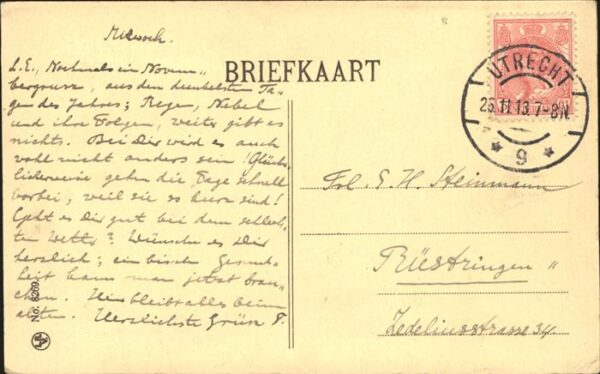 Mittwoch.
L. E., Nochmals ein Novem„
bergruss, aus den dunkelsten Ta„
gen des Jahres; Regen, Nebel
und ihre Folgen, weiter gibt es
nichts. Bei Dir wird es auch
wohl nicht anders sein! Glück„
licherweise gehen die Tage schnell
vorbei, weil sie so kurz sind!
Geht es Dir gut bei dem schlech„
ten Wetter? Wünsche es Dir
herzlich; ein bischen Gesund„
heit kann man jetzt brau„
chen. Hier bleibt alles beim
alten. Herzlichste Grüsse
BRIEFKAART
UTRECHT
25.11.13.7-8N
* 9 *
Frl. E. H. Steinmann
Rüstringen „
Zedeliusstrasse 34.
No. 8269